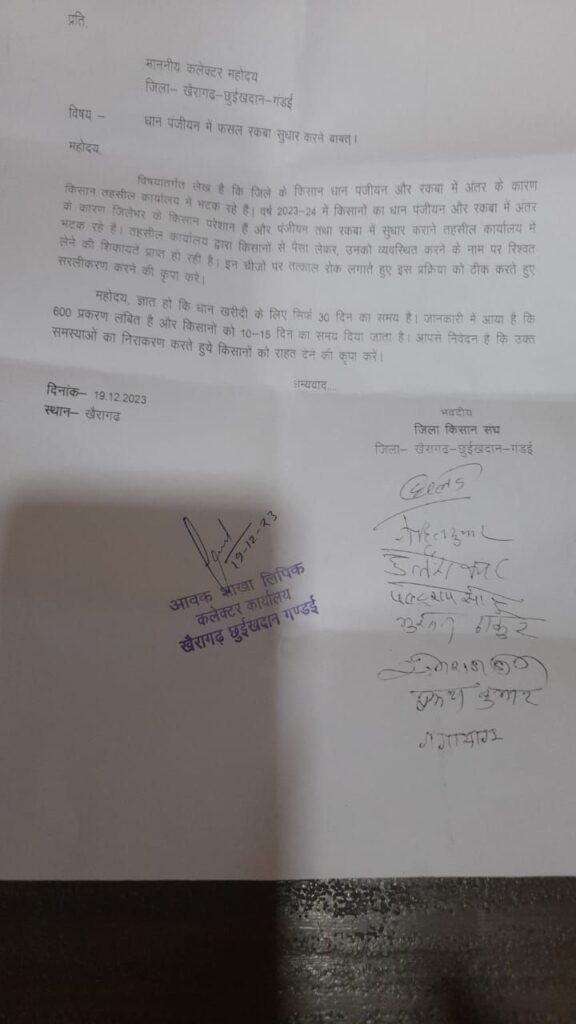 प्रति,
माननीय कलेक्टर महोदय
जिला– खैरागढ़–छुईखदान–गडई
विषय – धान पंजीयन में फसल रकबा सुधार करने बाबत्।
महोदय,
विषयांतर्गत लेख है कि जिले के किसान धान पंजीयन और रकबा में अंतर के कारण
किसान तहसील कार्यालय में भटक रहे है। वर्ष 2023–24 में किसानों का धान पंजीयन और रकबा में अंतर
के कारण जिलेभर के किसान परेशान हैं और पंजीयन तथा रकबा में सुधार कराने तहसील कार्यालय में
भटक रहे है। तहसील कार्यालय द्वारा किसानों से पैसा लेकर, उनको व्यवस्थित करने के नाम पर रिश्वत
लेने की शिकायतें प्राप्त हो रही है। इन चीजों पर तत्काल रोक लगाते हुए इस प्रक्रिया को ठीक करते हुए
सरलीकरण करने की कृपा करे।
महोदय, ज्ञात हो कि धान खरीदी के लिए सिर्फ 30 दिन का समय है। जानकारी में आया है कि
600 प्रकरण लंबित है और किसानों को 10–15 दिन का समय दिया जाता है। आपसे निवेदन है कि उक्त
समस्याओं का निराकरण करते हुये किसानों को राहत देने की कृपा करें।
धन्यवाद...
दिनांक– 19.12.2023
स्थान– खैरागढ़
भवदीय
जिला किसान संघ
जिला– खैरागढ़–छुईखदान–गंडई
19-12-23
आवक शाखा लिपिक
कलेक्टर कार्यालय
खैरागढ़ छुईखदान गण्डई
ठाकुर
कुमार